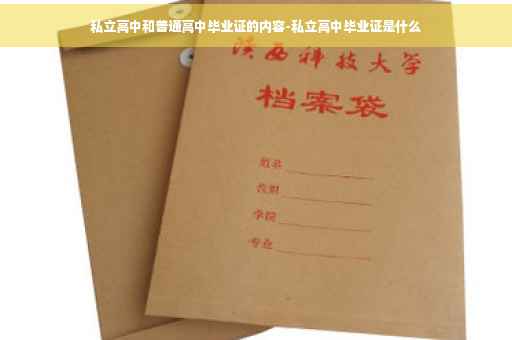 私立高中和普通高中毕业证的内容-私立高中毕业证是什么
陕西科技大学
档案袋
姓名
学院
专业